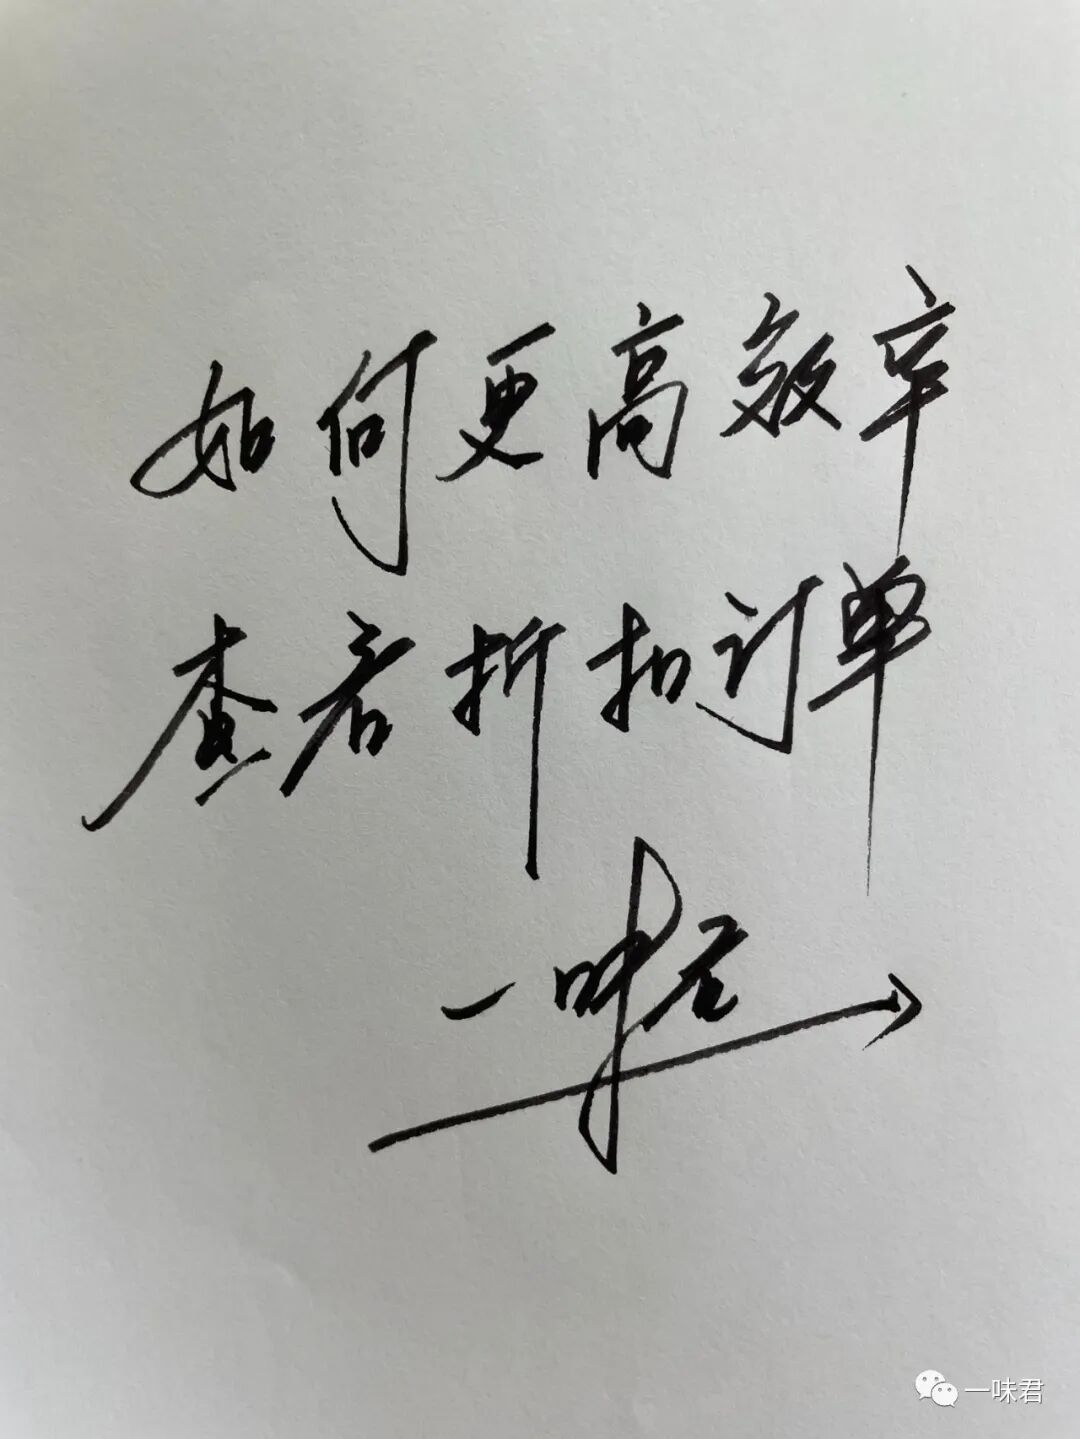 如何更高效率
查看折扣订单
一味君
一味君